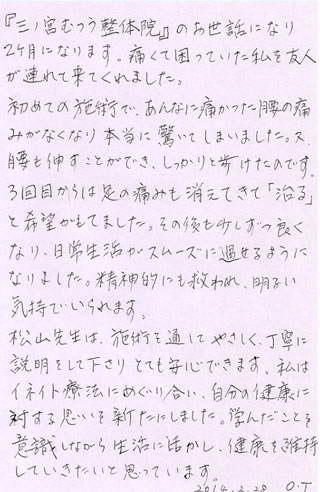 『三ノ宮むつう整体院』のお世話になり
2ヶ月になります。痛くて困っていた私を友人
が連れて来てくれました。
初めての施術で、あんなに痛かった腰の痛
みがなくなり本当に驚いてしまいました。又、
腰も伸すことができ、しっかりと歩けたのです。
3回目からは足の痛みも消えてきて「治る」
と希望がもてました。その後も少しずつ良く
なり、日常生活がスムーズに過せるように
なりました。精神的にも救われ、明るい
気持でいられます。
松山先生は、施術を通してやさしく、丁寧に
説明をして下さりとても安心できます。私は
イネイト療法にめぐり合い、自分の健康に
対する思いを新たにしました。学んだことを
意識しながら生活に活かし、健康を維持
していきたいと思っています
2014.2.28 O.T